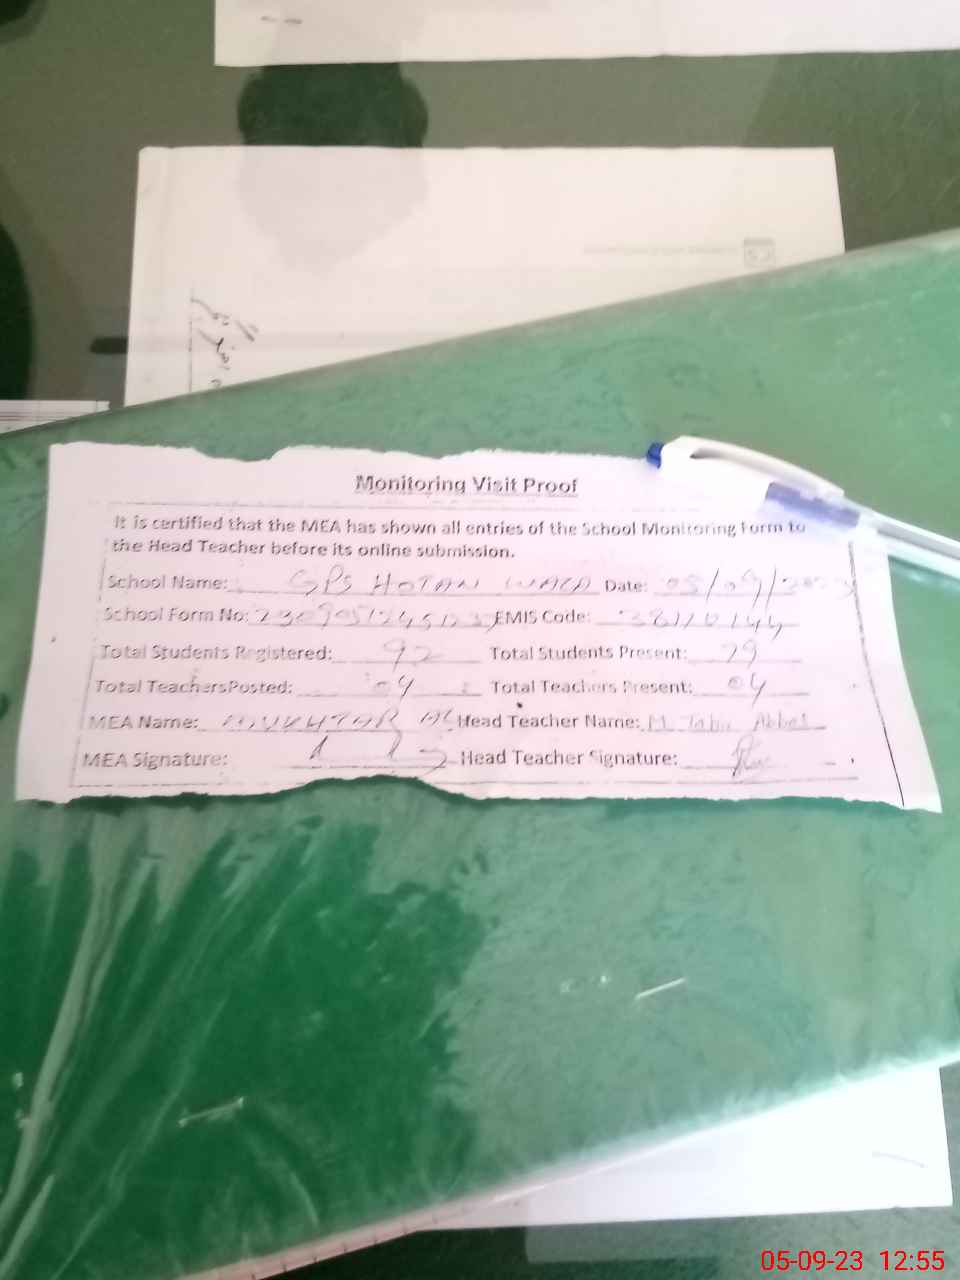 Monitoring Visit Proof
It is certified that the MEA has shown all entries of the School Monitoring Form to
the Head Teacher before its online submission.
School Name: GPS HOTAN WALA Date: 05/09/2023
School Form No: EMIS Code:
Total Students Registered: 92 Total Students Present: 79
Total TeachersPosted: 04 Total Teachers Present: 04
MEA Name: MUKHTAR Head Teacher Name: M. Abbas
MEA Signature: Head Teacher Signature:
05-09-23 12:55